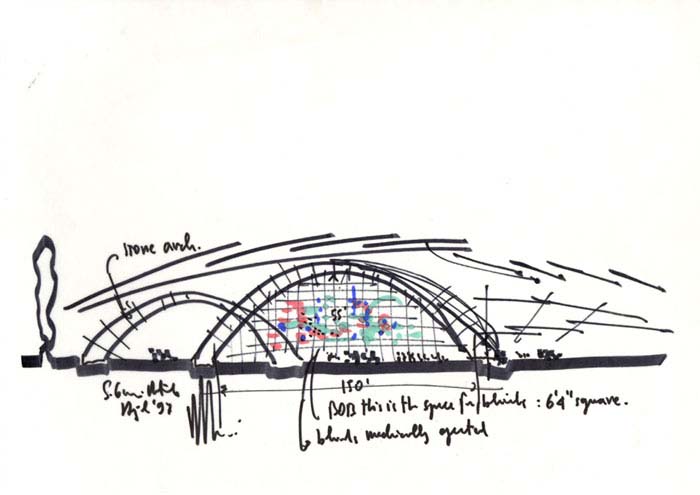 stone arch.
150'
'97
BOB this is th space for blinds : 6'4" square.
blinds mechanically operated